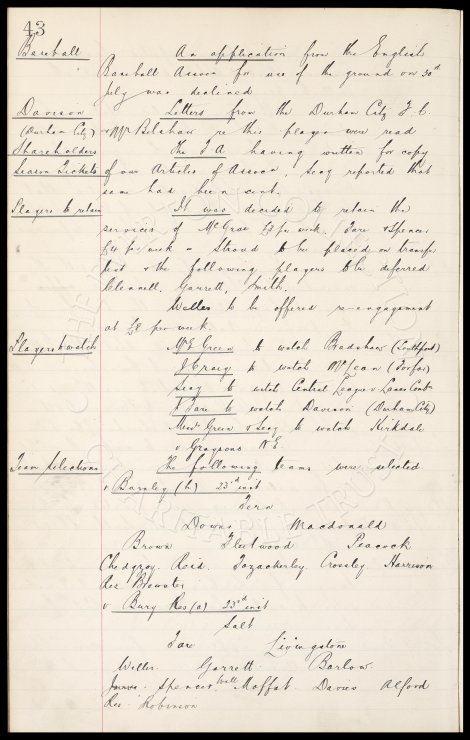 43
Baseball An application from the English
Baseball Assocn for use of the ground on 30th
July was declined
Davison Letters from the Durham City F.C.
(Durham City) & Mr Belshaw re this player were read
Shareholders The F A having written for copy
Season Tickets of our Articles of Assocn, Secy reported that
same had been sent.
Players to retain It was decided to retain the
services of McGrae £8 per week. Fare & Spencer
£4 per week & Stroud to be placed on transfer
list & the following players to be deferred
Clennell, Garrett, Smith.
Weller to be offered re-engagement
at £8 per week.
Players to watch Mr E Green to watch Bradshaw (Southport)
J Craig to watch McLean (Forfar)
Secy to watch Central League v Lancs Comb
J Fare to watch Davison (Durham City)
Messrs Green & Secy to watch Kirkdale
v Graysons N E
Team selections The following teams were selected
v Burnley (h) 23rd inst
Fern
Downs Macdonald
Brown Fleetwood Peacock
Chedgzoy Reid. Fazackerley Crossley Harrison
Res Brewster
v Bury Res (a) 23rd inst
Salt
Fare Livingstone
Weller Garrett Barlow
Jarvis. Spencer Wall Moffat Davies Alford
Res. Robinson
CHARITABLE TRUST